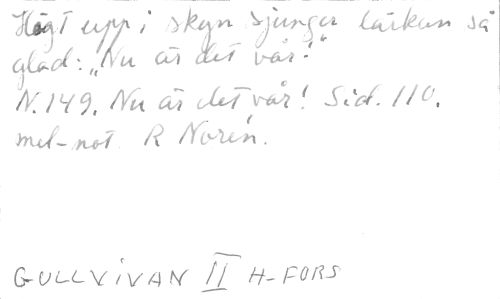 Högt upp i skyn sjunger lärkan så
glad: „Nu är det vår!"
N. 149. Nu är det vår! Sid. 110.
mel-not. R Norén.
GULLVIVAN II H-FORS